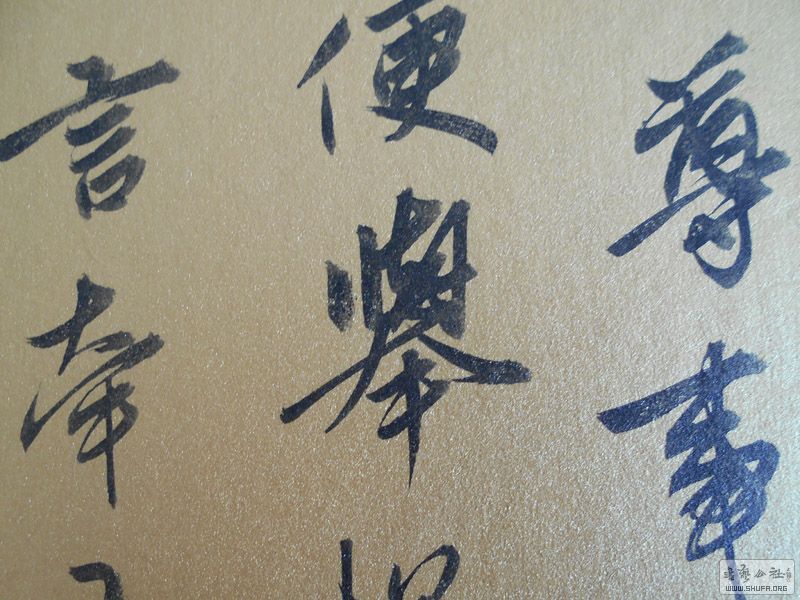 尊事
便舉
言牽
書法公社
WWW.SHUFA.ORG